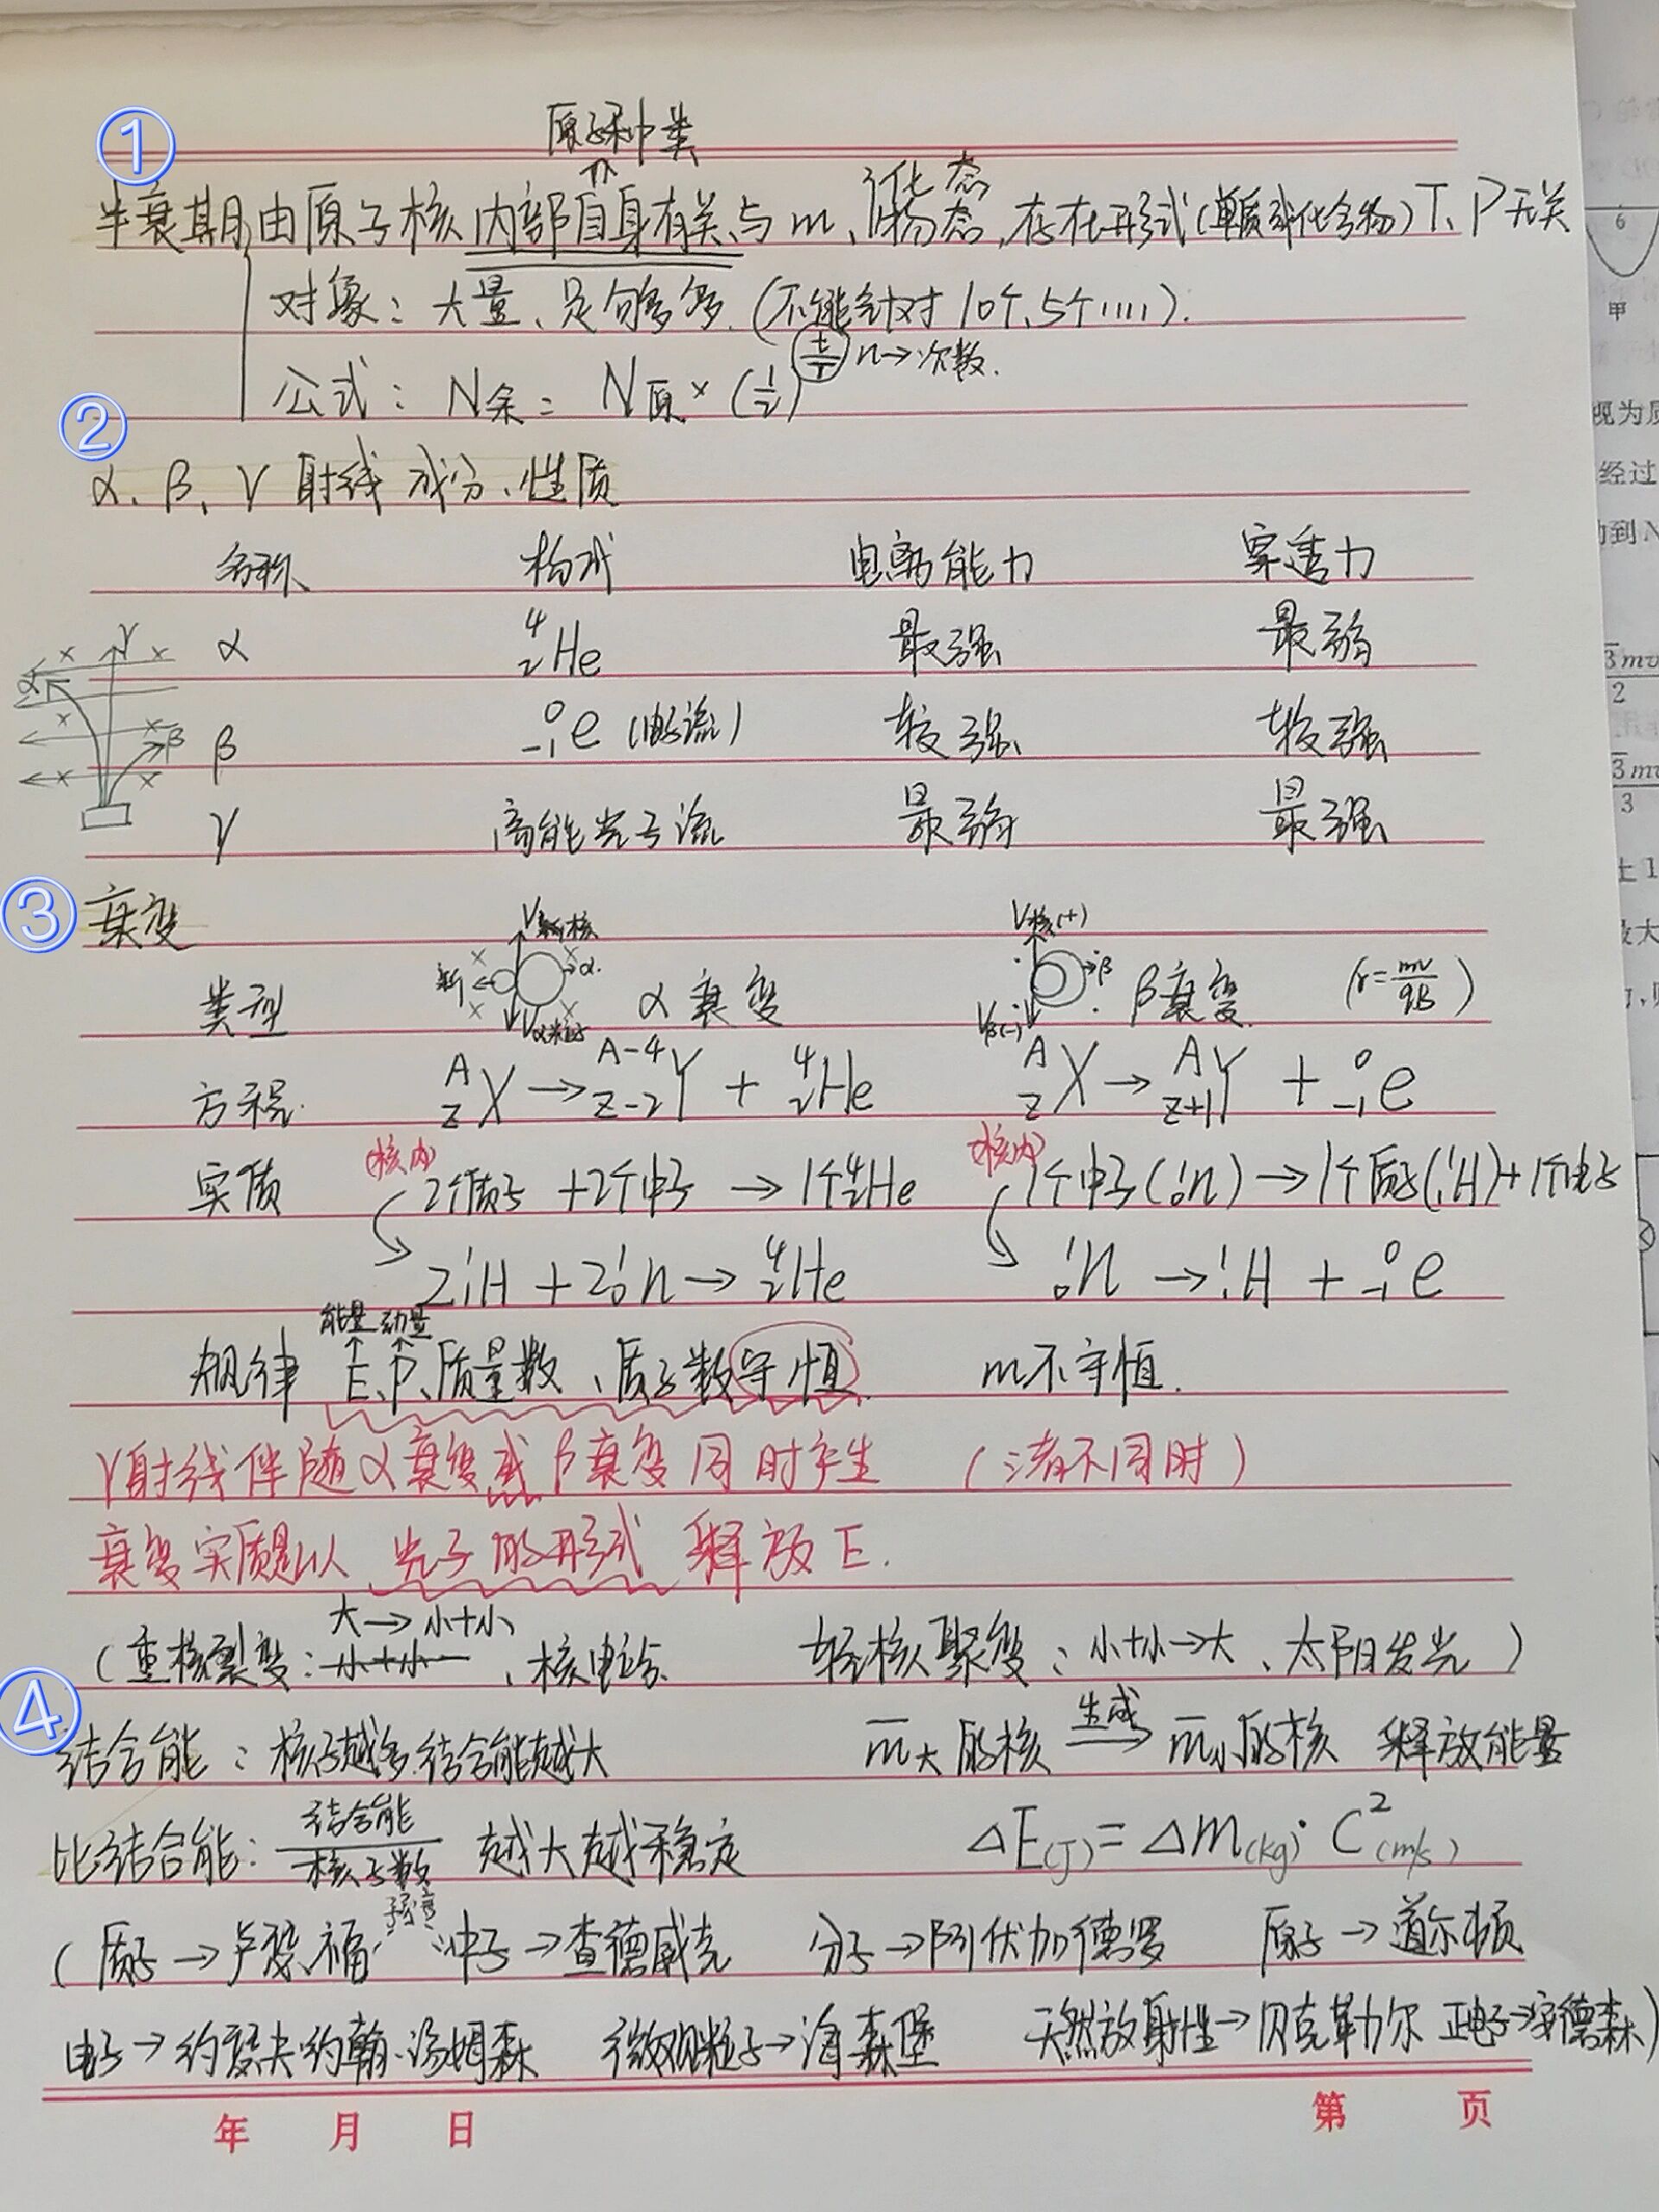 ①
原子种类
半衰期由原子核内部自身有关、与m、化态 物态,存在形式(单质或化合物)T、P无关
对象:大量、足够多.(不能针对10个、5个……).
公式:N余=N原×(1/2)^(t/T) n→次数.
②
α、β、γ射线 成分、性质
名称 构成 电离能力 穿透力
α ⁴₂He 最强 最弱
β ⁰₋₁e (电子流) 较强 较强
γ 高能光子流 最弱 最强
γ
α
β
③ 衰变
V新核 V核(+)
新 α β
类型 α衰变 β衰变 (r=mv/qB)
Vα粒子 Vβ(-)
方程 ᴬzX→ᴬ⁻⁴z-2Y+⁴₂He ᴬzX→ᴬz+1Y+⁰₋₁e
(核内) (核内)
实质 2个质子+2个中子→1个⁴₂He 1个中子(¹₀n)→1个质子(¹₁H)+1个电子
2¹₁H+2¹₀n→⁴₂He ¹₀n→¹₁H+⁰₋₁e
能量 动量
规律 E、P、质量数、质子数守恒 m不守恒.
γ射线伴随α衰变或β衰变同时产生 (三者不同时)
衰变实质是以光子的形式释放E.
大→小+小
(重核裂变:小+小 、核电站 轻核聚变:小+小→大、太阳发光)
④
生成
结合能:核子越多结合能越大 m̄大的核→m̄小的核 释放能量
比结合能:结合能/核子数 越大越稳定 ΔE(J)=Δm(kg)·C²(m/s)
预言
(质子→卢瑟福 中子→查德威克 分子→阿伏加德罗 原子→道尔顿
电子→约瑟夫·约翰·汤姆森 微观粒子→海森堡 天然放射性→贝克勒尔 正电子→安德森)
年 月 日 第 页
6
甲
视为质
经过
动到N
√3mv
2
√3mv
3
土1